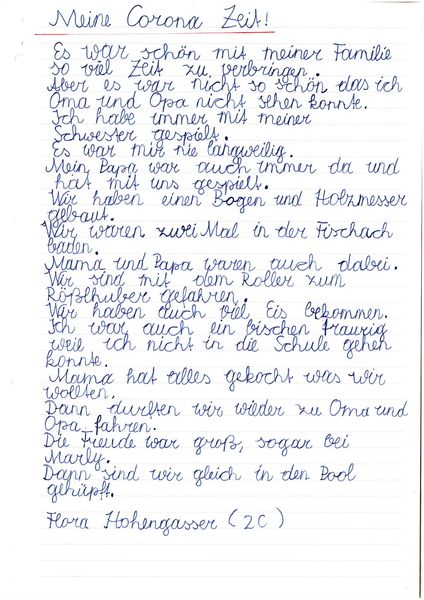 Meine Corona Zeit!
Es war schön mit meiner Familie
so viel Zeit zu verbringen.
Aber es war nicht so schön das ich
Oma und Opa nicht sehen konnte.
Ich habe immer mit meiner
Schwester gespielt.
Es war mir nie langweilig.
Mein Papa war auch immer da und
hat mit uns gespielt.
Wir haben einen Bogen und Holzmesser
gebaut.
Wir waren zwei Mal in der Fischach
baden.
Mama und Papa waren auch dabei.
Wir sind mit dem Roller zum
Rößlhuber gefahren.
Wir haben auch viel Eis bekommen.
Ich war auch ein bischen traurig
weil ich nicht in die Schule gehen
konnte.
Mama hat alles gekocht was wir
wollten.
Dann durften wir wieder zu Oma und
Opa fahren.
Die Freude war groß, sogar bei
Marly.
Dann sind wir gleich in den Pool
gehüpft.
Flora Hohengasser (2C)